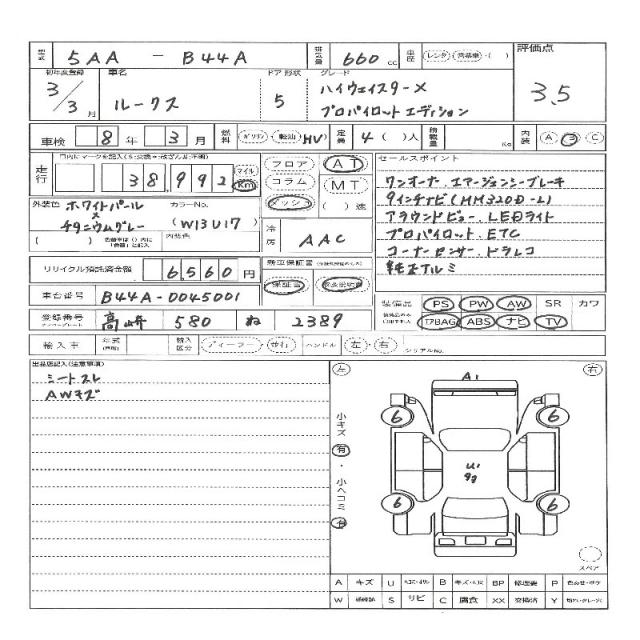 型式 5AA - B44A 排気量 660 cc 車歴 レンタ・営業車・( ) 評価点
3.5
初年度登録 車名 ドア 形状 グレード
3/3月 ルークス 5 ハイウェイスターX
プロパイロットエディション
車検 8年 3月 燃料 ガソリン・軽油 HV 定員 4( )人 積載量 Kg 内装 A B C
走行 38,992 マイル Km
フロア AT
コラム MT
ダッシュ ( )速
冷房 AAC
外装色 ホワイトパール
×
チタニウムグレー
カラーNo. (W13U17)
内装色
リサイクル預託済金額 6,560円
保証書 取扱説明書
車台番号 B44A-0045001
登録番号 高崎 580 ね 2389
輸入車 年式 輸入区分 ディーラー・並行 ハンドル 左・右 シリアルNo.
セールスポイント
ワンオーナー.エマージェンシーブレーキ
9インチナビ(MM320D-L)
アラウンドビュー.LEDライト
プロパイロット.ETC
コーナーセンサー.ドラレコ
純正アルミ
装備品 PS PW AW SR カワ
AirBAG ABS ナビ TV
出品店記入(注意事項)
シートスレ
AWキズ
左 右
A1
6 6
小キズ 有・小ヘコミ 有
U1
6 6
スペア
A キズ U B BP 修理要 P
W S サビ C 腐食 XX 交換済 Y